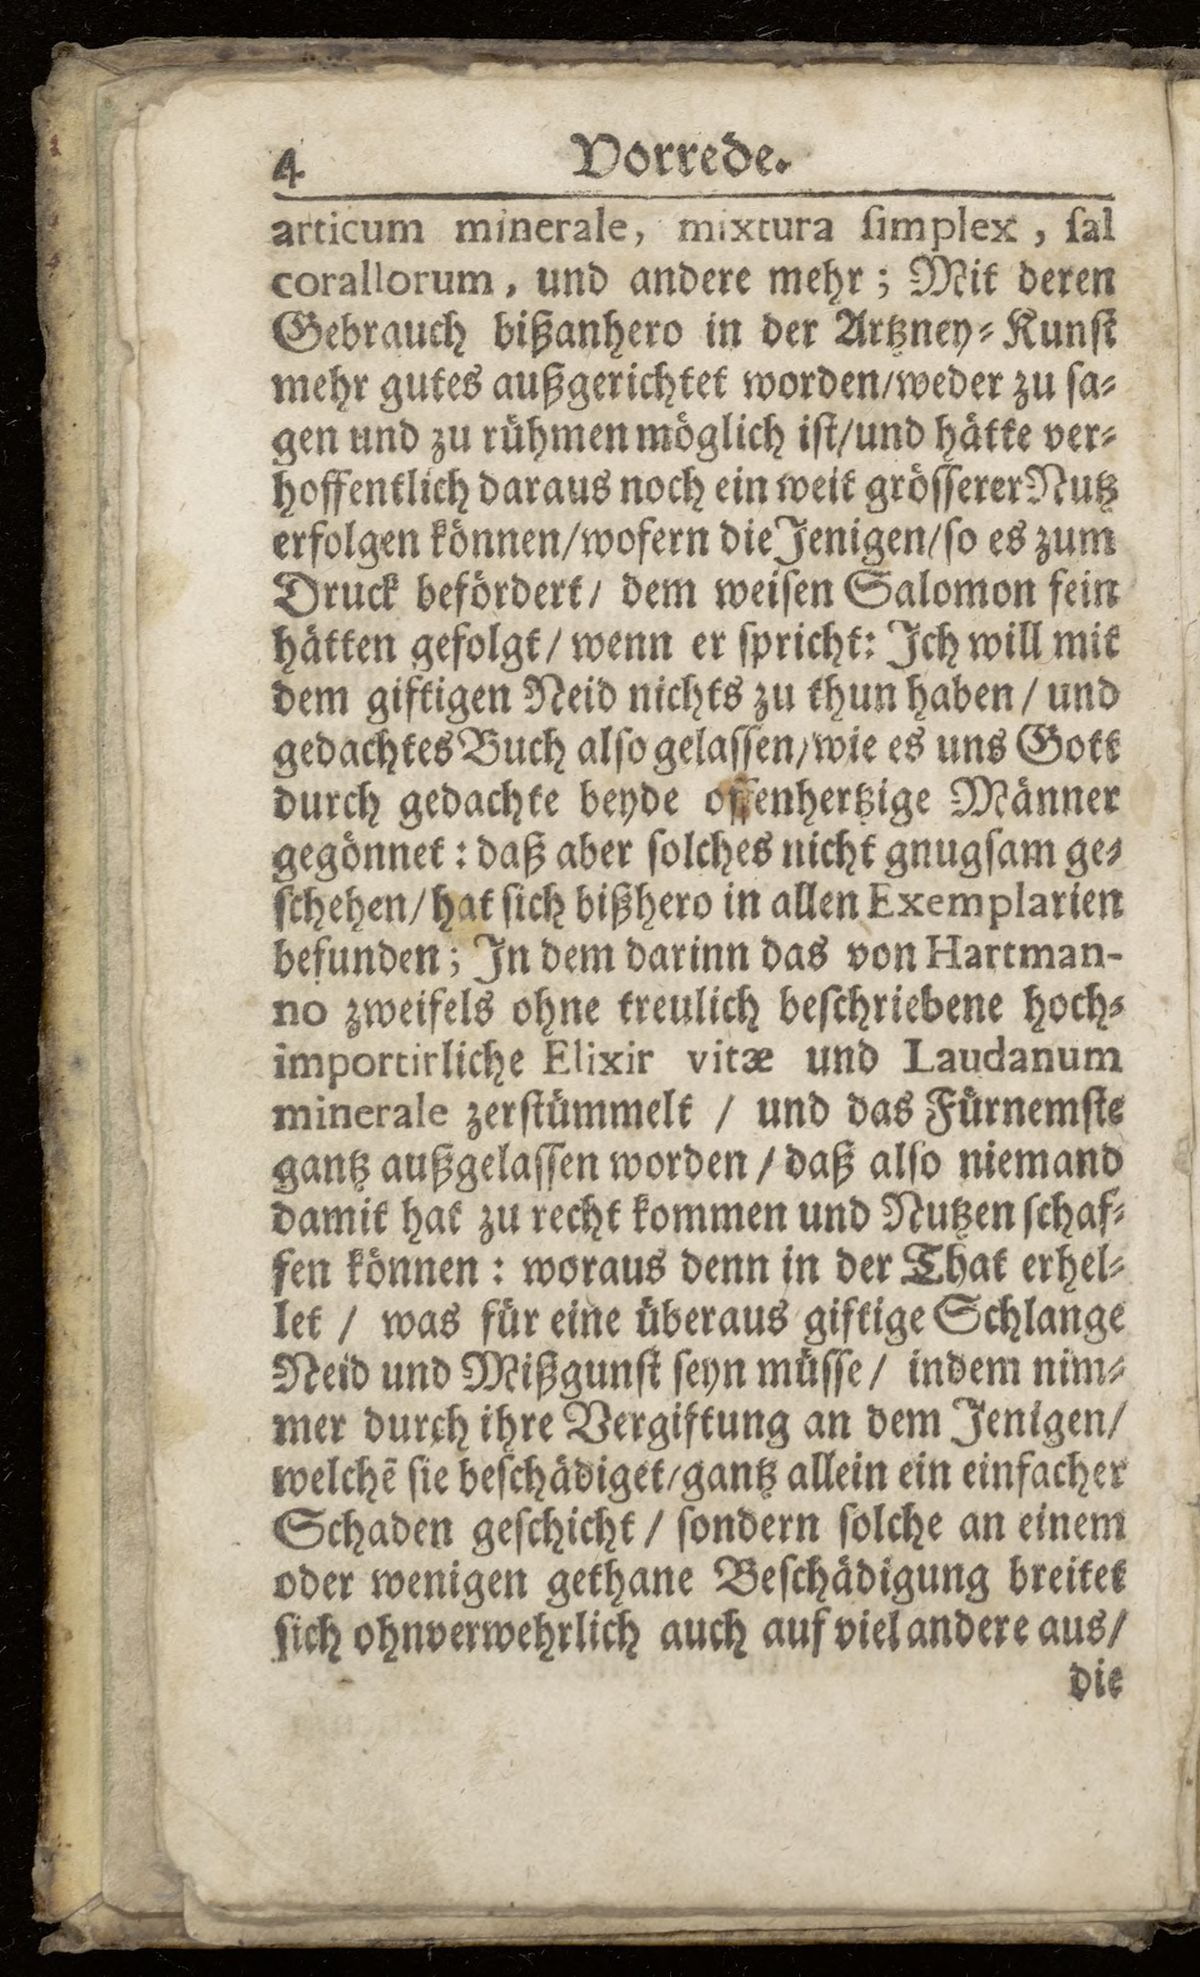 4 Vorrede.
articum minerale, mixtura ſimplex, ſal
corallorum, und andere mehr; Mit deren
Gebrauch bißanhero in der Artzney-Kunſt
mehr gutes außgerichtet worden/weder zu ſa-
gen und zu rühmen möglich iſt/und hätte ver-
hoffentlich daraus noch ein weit gröſſerer Nutz
erfolgen können/wofern die Jenigen/ſo es zum
Druck befördert/ dem weiſen Salomon fein
hätten gefolgt/ wenn er ſpricht: Ich will mit
dem giftigen Neid nichts zu thun haben/ und
gedachtes Buch alſo gelaſſen/wie es uns Gott
durch gedachte beyde offenhertzige Männer
gegönnet: daß aber ſolches nicht gnugſam ge-
ſchehen/hat ſich bißhero in allen Exemplarien
befunden; In dem darinn das von Hartman-
no zweifels ohne treulich beſchriebene hoch-
importirliche Elixir vitæ und Laudanum
minerale zerſtümmelt / und das Fürnemſte
gantz außgelaſſen worden / daß alſo niemand
damit hat zu recht kommen und Nutzen ſchaf-
fen können: woraus denn in der That erhel-
let / was für eine überaus giftige Schlange
Neid und Mißgunſt ſeyn müſſe/ indem nim-
mer durch ihre Vergiftung an dem Jenigen/
welchē ſie beſchädiget/gantz allein ein einfacher
Schaden geſchicht / ſondern ſolche an einem
oder wenigen gethane Beſchädigung breitet
ſich ohnverwehrlich auch auf viel andere aus/
die